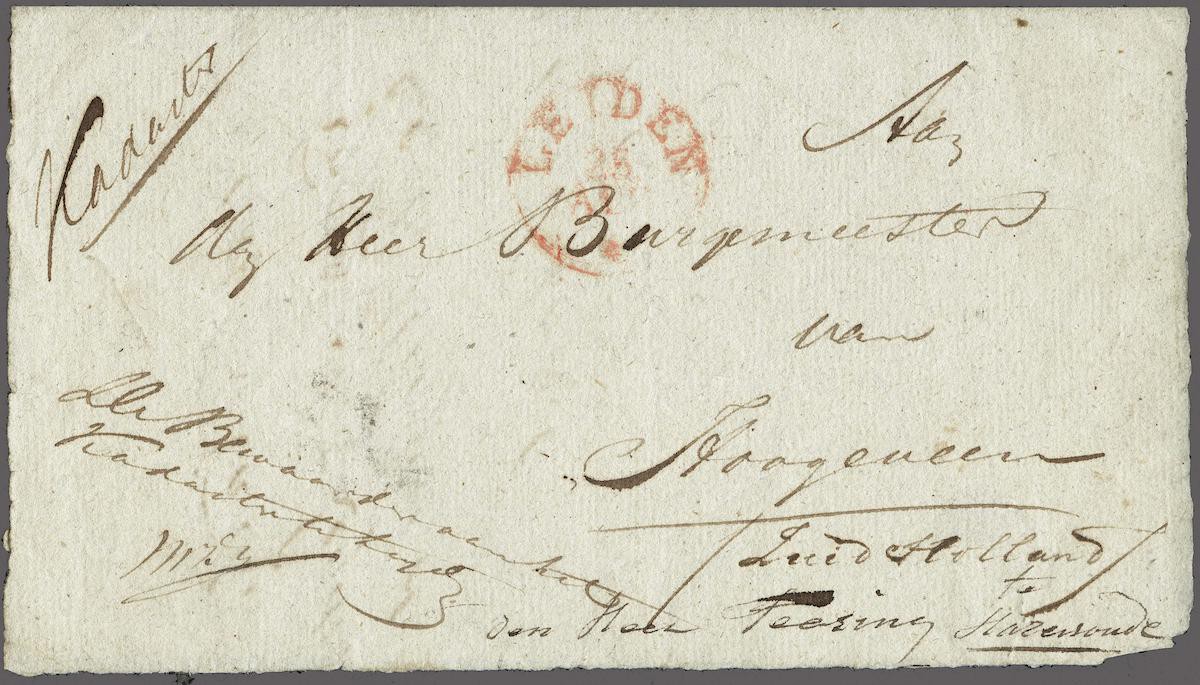 Kadaster
LEIDEN
Aan
den Heer Burgemeester
van
Hoogeveen
/Zuid Holland/
De Bewaarder van het
Kadaster
den Heer Teering te
Hazerwoude